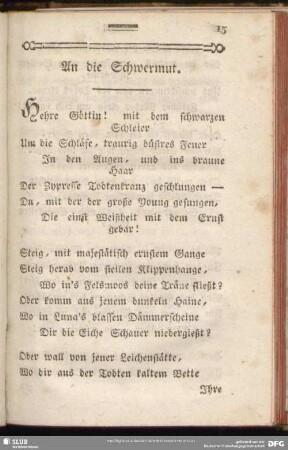 15
An die Schwermut.
Hehre Göttin! mit dem schwarzen
Schleier
Um die Schläfe, traurig düstres Feuer
In den Augen, und ins braune
Haar
Der Zypresse Todtenkranz geschlungen —
Du, mit der der große Young gesungen,
Die einst Weisheit mit dem Ernst
gebar!
Steig, mit majestätisch ernstem Gange
Steig herab vom steilen Klippenhange,
Wo in's Felsmoos deine Träne fließt?
Oder komm aus jenem dunkeln Haine,
Wo in Luna's blassen Dämmerscheine
Dir die Eiche Schauer niedergießt?
Oder wall von jener Leichenstätte,
Wo dir aus der Todten kaltem Bette
Ihre
SLUB
DFG